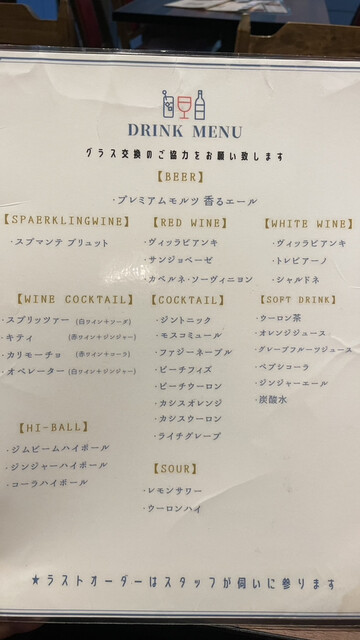 DRINK MENU
グラス交換のご協力をお願い致します
【BEER】
・プレミアムモルツ 香るエール
【SPAERKLINGWINE】
・スプマンテ ブリュット
【RED WINE】
・ヴィッラビアンキ
・サンジョベーゼ
・カベルネ・ソーヴィニヨン
【WHITE WINE】
・ヴィッラビアンキ
・トレビアーノ
・シャルドネ
【WINE COCKTAIL】
・スプリッツァー (白ワイン＋ソーダ)
・キティ (赤ワイン＋ジンジャー)
・カリモーチョ (赤ワイン＋コーラ)
・オペレーター (白ワイン＋ジンジャー)
【COCKTAIL】
・ジントニック
・モスコミュール
・ファジーネーブル
・ピーチフィズ
・ピーチウーロン
・カシスオレンジ
・カシスウーロン
・ライチグレープ
【SOFT DRINK】
・ウーロン茶
・オレンジジュース
・グレープフルーツジュース
・ペプシコーラ
・ジンジャーエール
・炭酸水
【HI-BALL】
・ジムビームハイボール
・ジンジャーハイボール
・コーラハイボール
【SOUR】
・レモンサワー
・ウーロンハイ
★ラストオーダーはスタッフが伺いに参ります